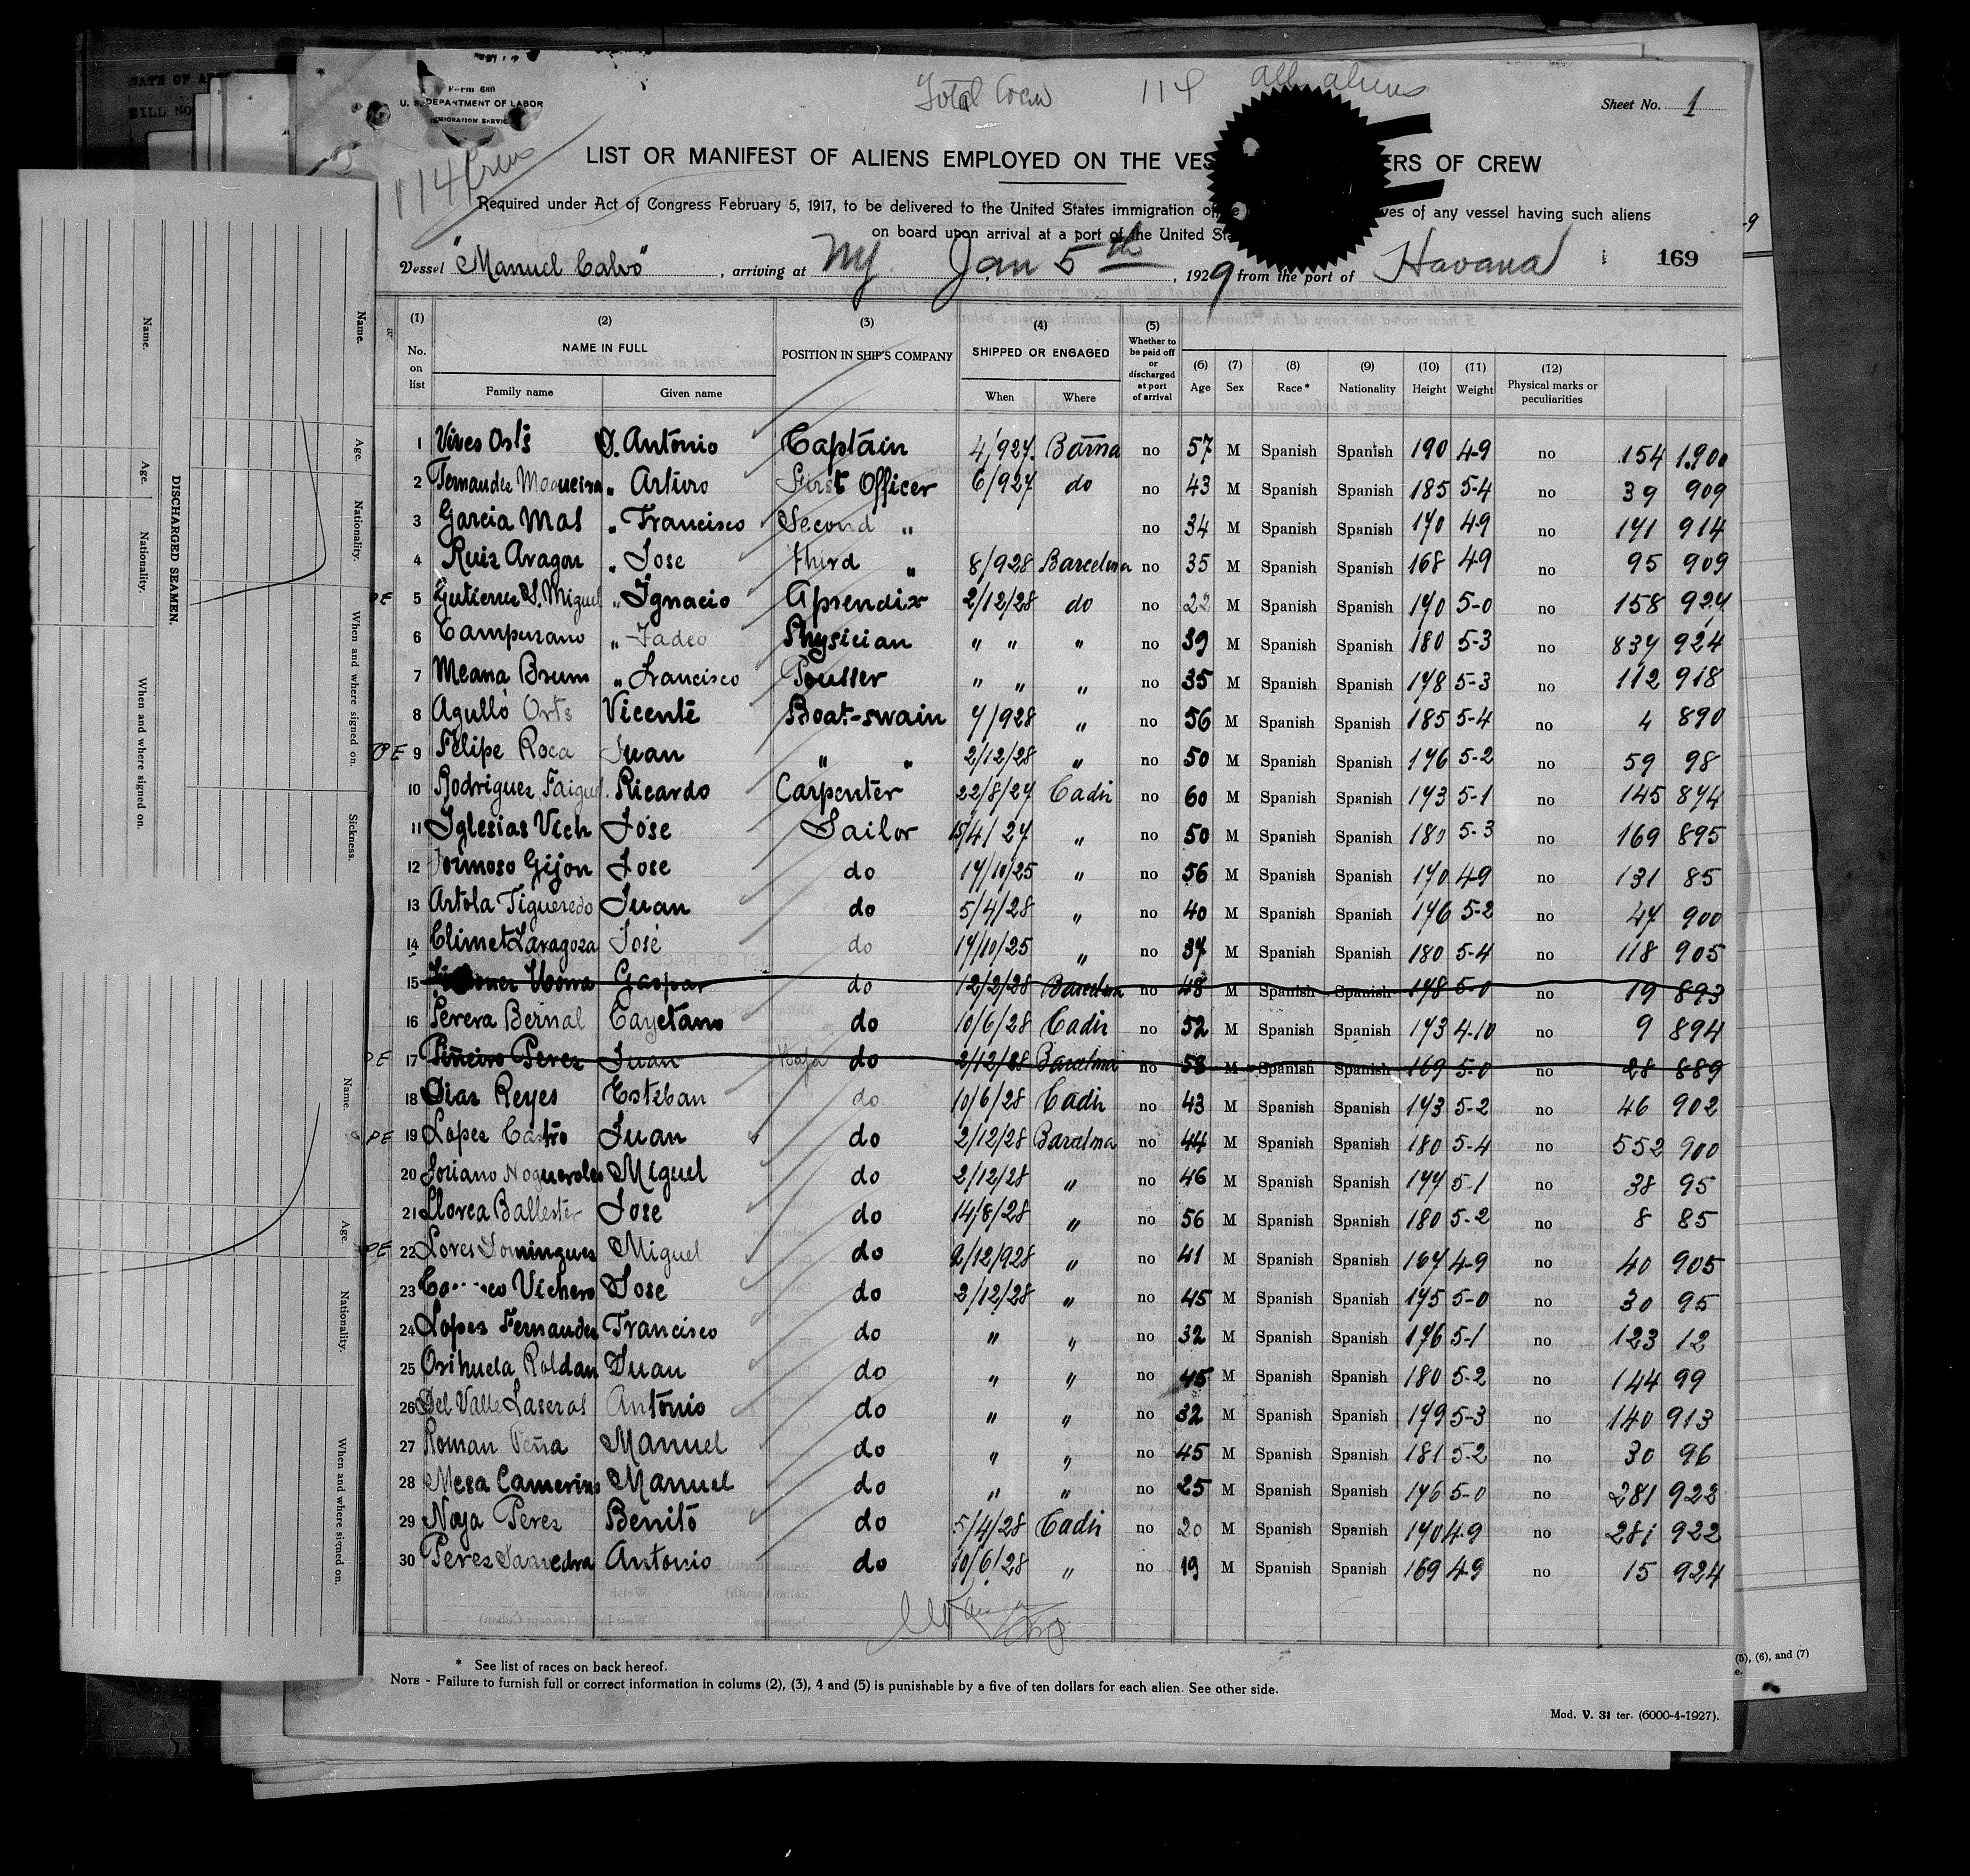 Total Crew 114 all aliens
Form 680
U. S. DEPARTMENT OF LABOR
IMMIGRATION SERVICE
Sheet No. 1
114 Crew
LIST OR MANIFEST OF ALIENS EMPLOYED ON THE VES ERS OF CREW
Required under Act of Congress February 5, 1917, to be delivered to the United States immigration of ves of any vessel having such aliens
on board upon arrival at a port of the United Sta
Vessel "Manuel Calvo", arriving at Ny. Jan 5th, 1929 from the port of Havana 169
(1) (2) (3) (4) (5) (6) (7) (8) (9) (10) (11) (12)
No. on list NAME IN FULL POSITION IN SHIP'S COMPANY SHIPPED OR ENGAGED Whether to be paid off or discharged at port of arrival Age Sex Race* Nationality Height Weight Physical marks or peculiarities
Family name Given name When Where
1 Vives Orts D. Antonio Captain 4/927. Barna no 57 M Spanish Spanish 190 4-9 no 154 1.900
2 Fernandez Moqueira " Arturo First Officer 6/927 do no 43 M Spanish Spanish 185 5-4 no 39 909
3 Garcia Mas " Francisco Second " no 34 M Spanish Spanish 170 4-9 no 171 914
4 Ruiz Aragon " Jose third " 8/928 Barcelona no 35 M Spanish Spanish 168 4-9 no 95 909
PE 5 Gutierrez S. Miguel " Ignacio Aprendix 2/12/28 do no 22 M Spanish Spanish 170 5-0 no 158 927
6 Campuzano " Tadeo Physician " " " no 39 M Spanish Spanish 180 5-3 no 837 924
7 Meana Brum " Francisco Poutler " " " no 35 M Spanish Spanish 178 5-3 no 112 918
8 Agulló Orts Vicente Boat-swain 7/928 " no 56 M Spanish Spanish 185 5-4 no 4 890
PE 9 Felipe Roca Juan " " 2/12/28 " no 50 M Spanish Spanish 176 5-2 no 59 98
10 Rodriguez Ricardo Carpenter 22/8/27 Cadiz no 60 M Spanish Spanish 173 5-1 no 145 874
11 Iglesias Vich Jose Sailor 15/4/27 " no 50 M Spanish Spanish 180 5-3 no 169 895
12 Formoso Gijon Jose do 17/10/25 " no 56 M Spanish Spanish 170 4-9 no 131 85
13 Artola Figueredo Juan do 5/4/28 " no 40 M Spanish Spanish 176 5-2 no 47 900
14 Climet Zaragoza José do 17/10/25 " no 37 M Spanish Spanish 180 5-4 no 118 905
15 Gaspar do 12/2/28 Barcelona no 48 M Spanish Spanish 178 5-0 no 19 893
16 Perera Bernal Cayetano do 10/6/28 Cadiz no 52 M Spanish Spanish 173 4-10 no 9 894
PE 17 Piñeiro Perez Juan do 2/12/28 Barcelona no 58 M Spanish Spanish 169 5-0 no 28 889
18 Diaz Reyes Esteban do 10/6/28 Cadiz no 43 M Spanish Spanish 173 5-2 no 46 902
PE 19 Lopez Castro Juan do 2/12/28 Barcelona no 44 M Spanish Spanish 180 5-4 no 552 900
20 Soriano Nogueroles Miguel do 2/12/28 " no 46 M Spanish Spanish 177 5-1 no 38 95
21 Llorca Ballester Jose do 14/8/28 " no 56 M Spanish Spanish 180 5-2 no 8 85
PE 22 Lores Domingues Miguel do 2/12/928 " no 41 M Spanish Spanish 167 4-9 no 40 905
23 Vichera Jose do 2/12/28 " no 45 M Spanish Spanish 175 5-0 no 30 95
24 Lopez Fernandez Francisco do " " no 32 M Spanish Spanish 176 5-1 no 123 12
25 Orihuela Roldan Juan do " " no 45 M Spanish Spanish 180 5-2 no 144 99
26 Del Valle Antonio do " " no 32 M Spanish Spanish 179 5-3 no 140 913
27 Roman Peña Manuel do " " no 45 M Spanish Spanish 181 5-2 no 30 96
28 Mesa Camerino Manuel do " " no 25 M Spanish Spanish 176 5-0 no 281 923
29 Noya Perez Benito do 5/4/28 Cadiz no 20 M Spanish Spanish 170 4-9 no 281 922
30 Perez Saavedra Antonio do 10/6/28 " no 19 M Spanish Spanish 169 4-9 no 15 924
* See list of races on back hereof.
NOTE - Failure to furnish full or correct information in colums (2), (3), 4 and (5) is punishable by a five of ten dollars for each alien. See other side.
Mod. V. 31 ter. (6000-4-1927).
(5), (6), and (7)
DISCHARGED SEAMEN.
Name. Age. Nationality. When and where signed on. Sickness.
Name. Age. Nationality. When and where signed on.
Name. Age. Nationality. When and where signed on.